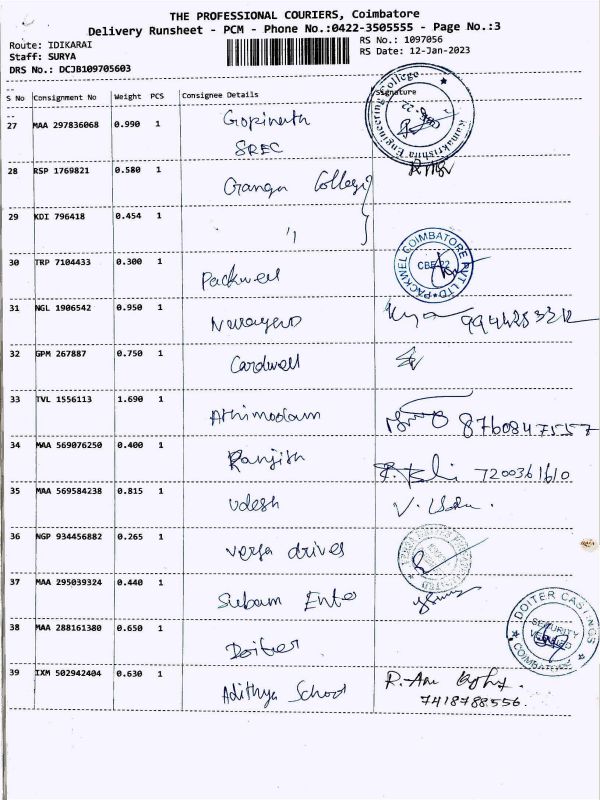 THE PROFESSIONAL COURIERS, Coimbatore
Delivery Runsheet - PCM - Phone No.:0422-3505555 - Page No.:3
Route: IDIKARAI
Staff: SURYA
DRS No.: DCJB109705603
RS No.: 1097056
RS Date: 12-Jan-2023
S No Consignment No Weight PCS Consignee Details Signature
27 MAA 297836068 0.990 1 Gopinath
SREC
Ramakrishna Engineering College
28 RSP 1769821 0.580 1 Ganga College
29 KDI 796418 0.454 1 "
30 TRP 7104433 0.300 1 Packwell
PACKWEL COIMBATORE PVT LTD
CBE-22
31 NGL 1906542 0.950 1
32 GPM 267887 0.750 1 Cardwell
33 TVL 1556113 1.690 1 Athimodam 8760847557
34 MAA 569076250 0.400 1 Ranjith 7200361610
35 MAA 569584238 0.815 1 Udesh
36 NGP 934456882 0.265 1 Versa drives
37 MAA 295039324 0.440 1 Subam Ente
38 MAA 288161380 0.650 1 Doitier
DOITER CASTINGS
SECURITY
VERIFIED
COIMBATORE
39 IXM 502942404 0.630 1 Adithya School
7418788556.